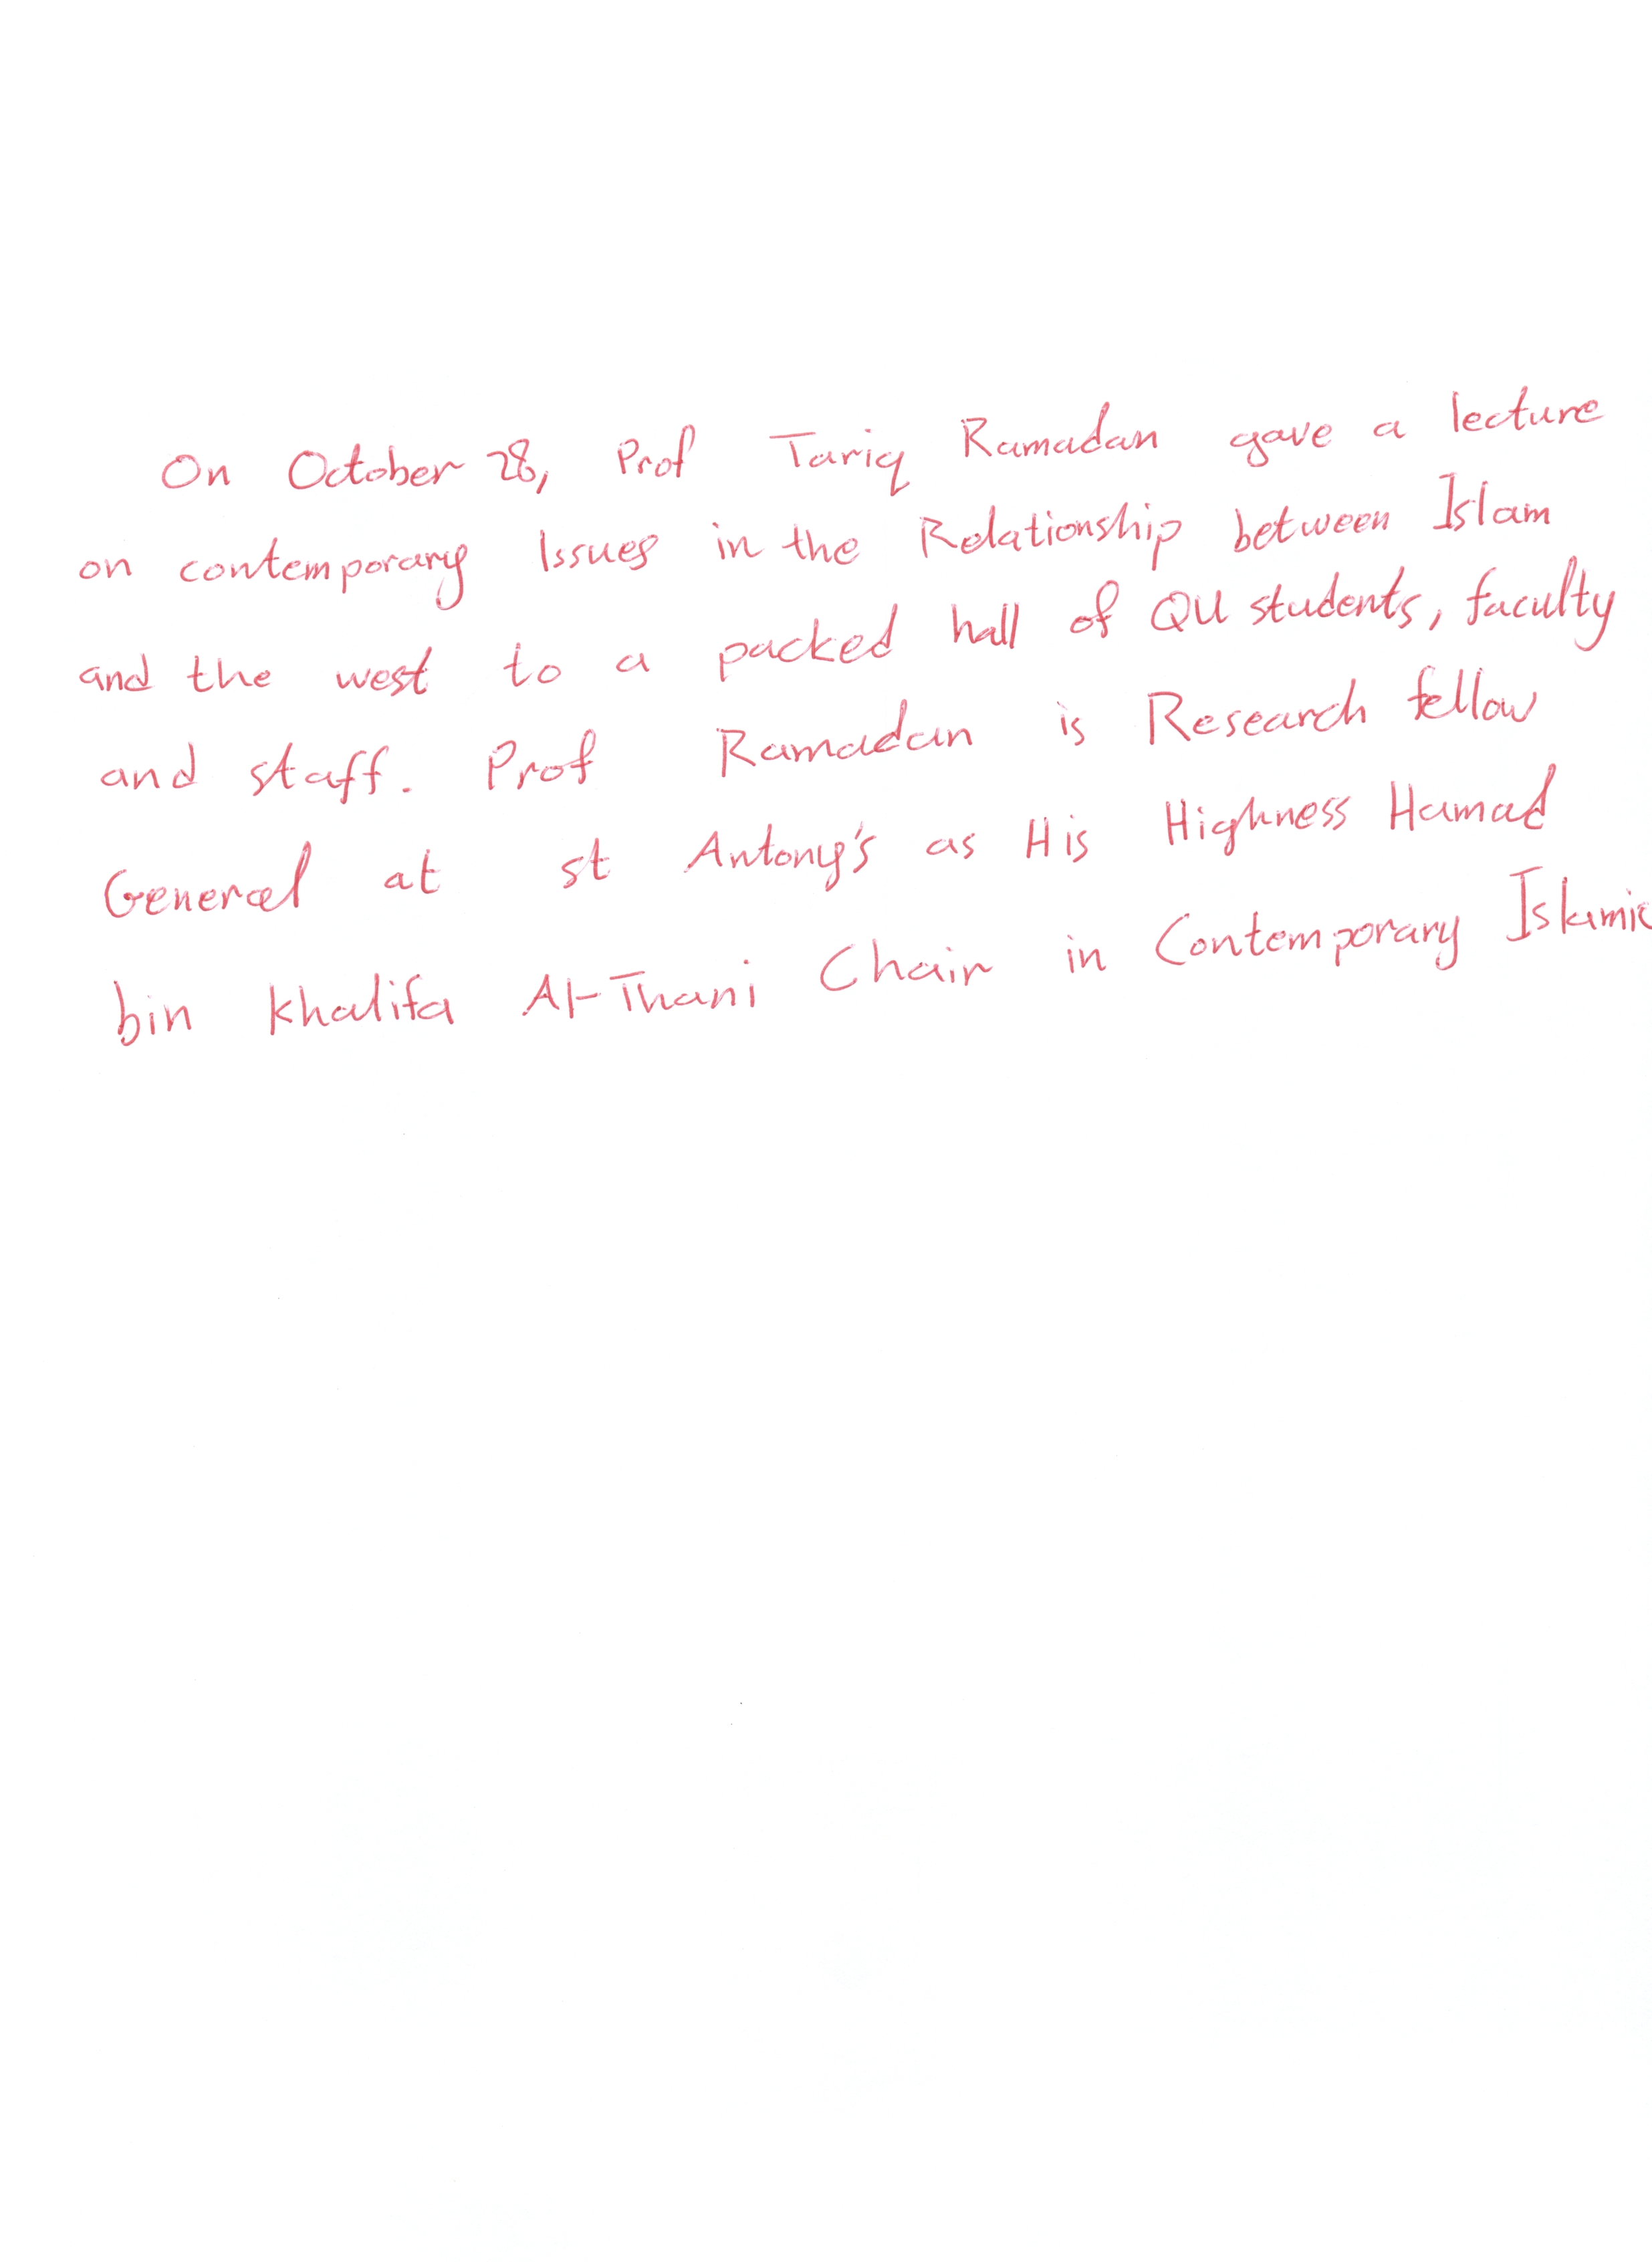 On October 28, Prof Tariq Ramadan gave a lecture
on contemporary Issues in the Relationship between Islam
and the west to a packed hall of QU students, faculty
and staff. Prof Ramadan is Research fellow
General at st Antony's as His Highness Hamad
bin Khalifa Al-Thani Chair in Contemporary Islamic